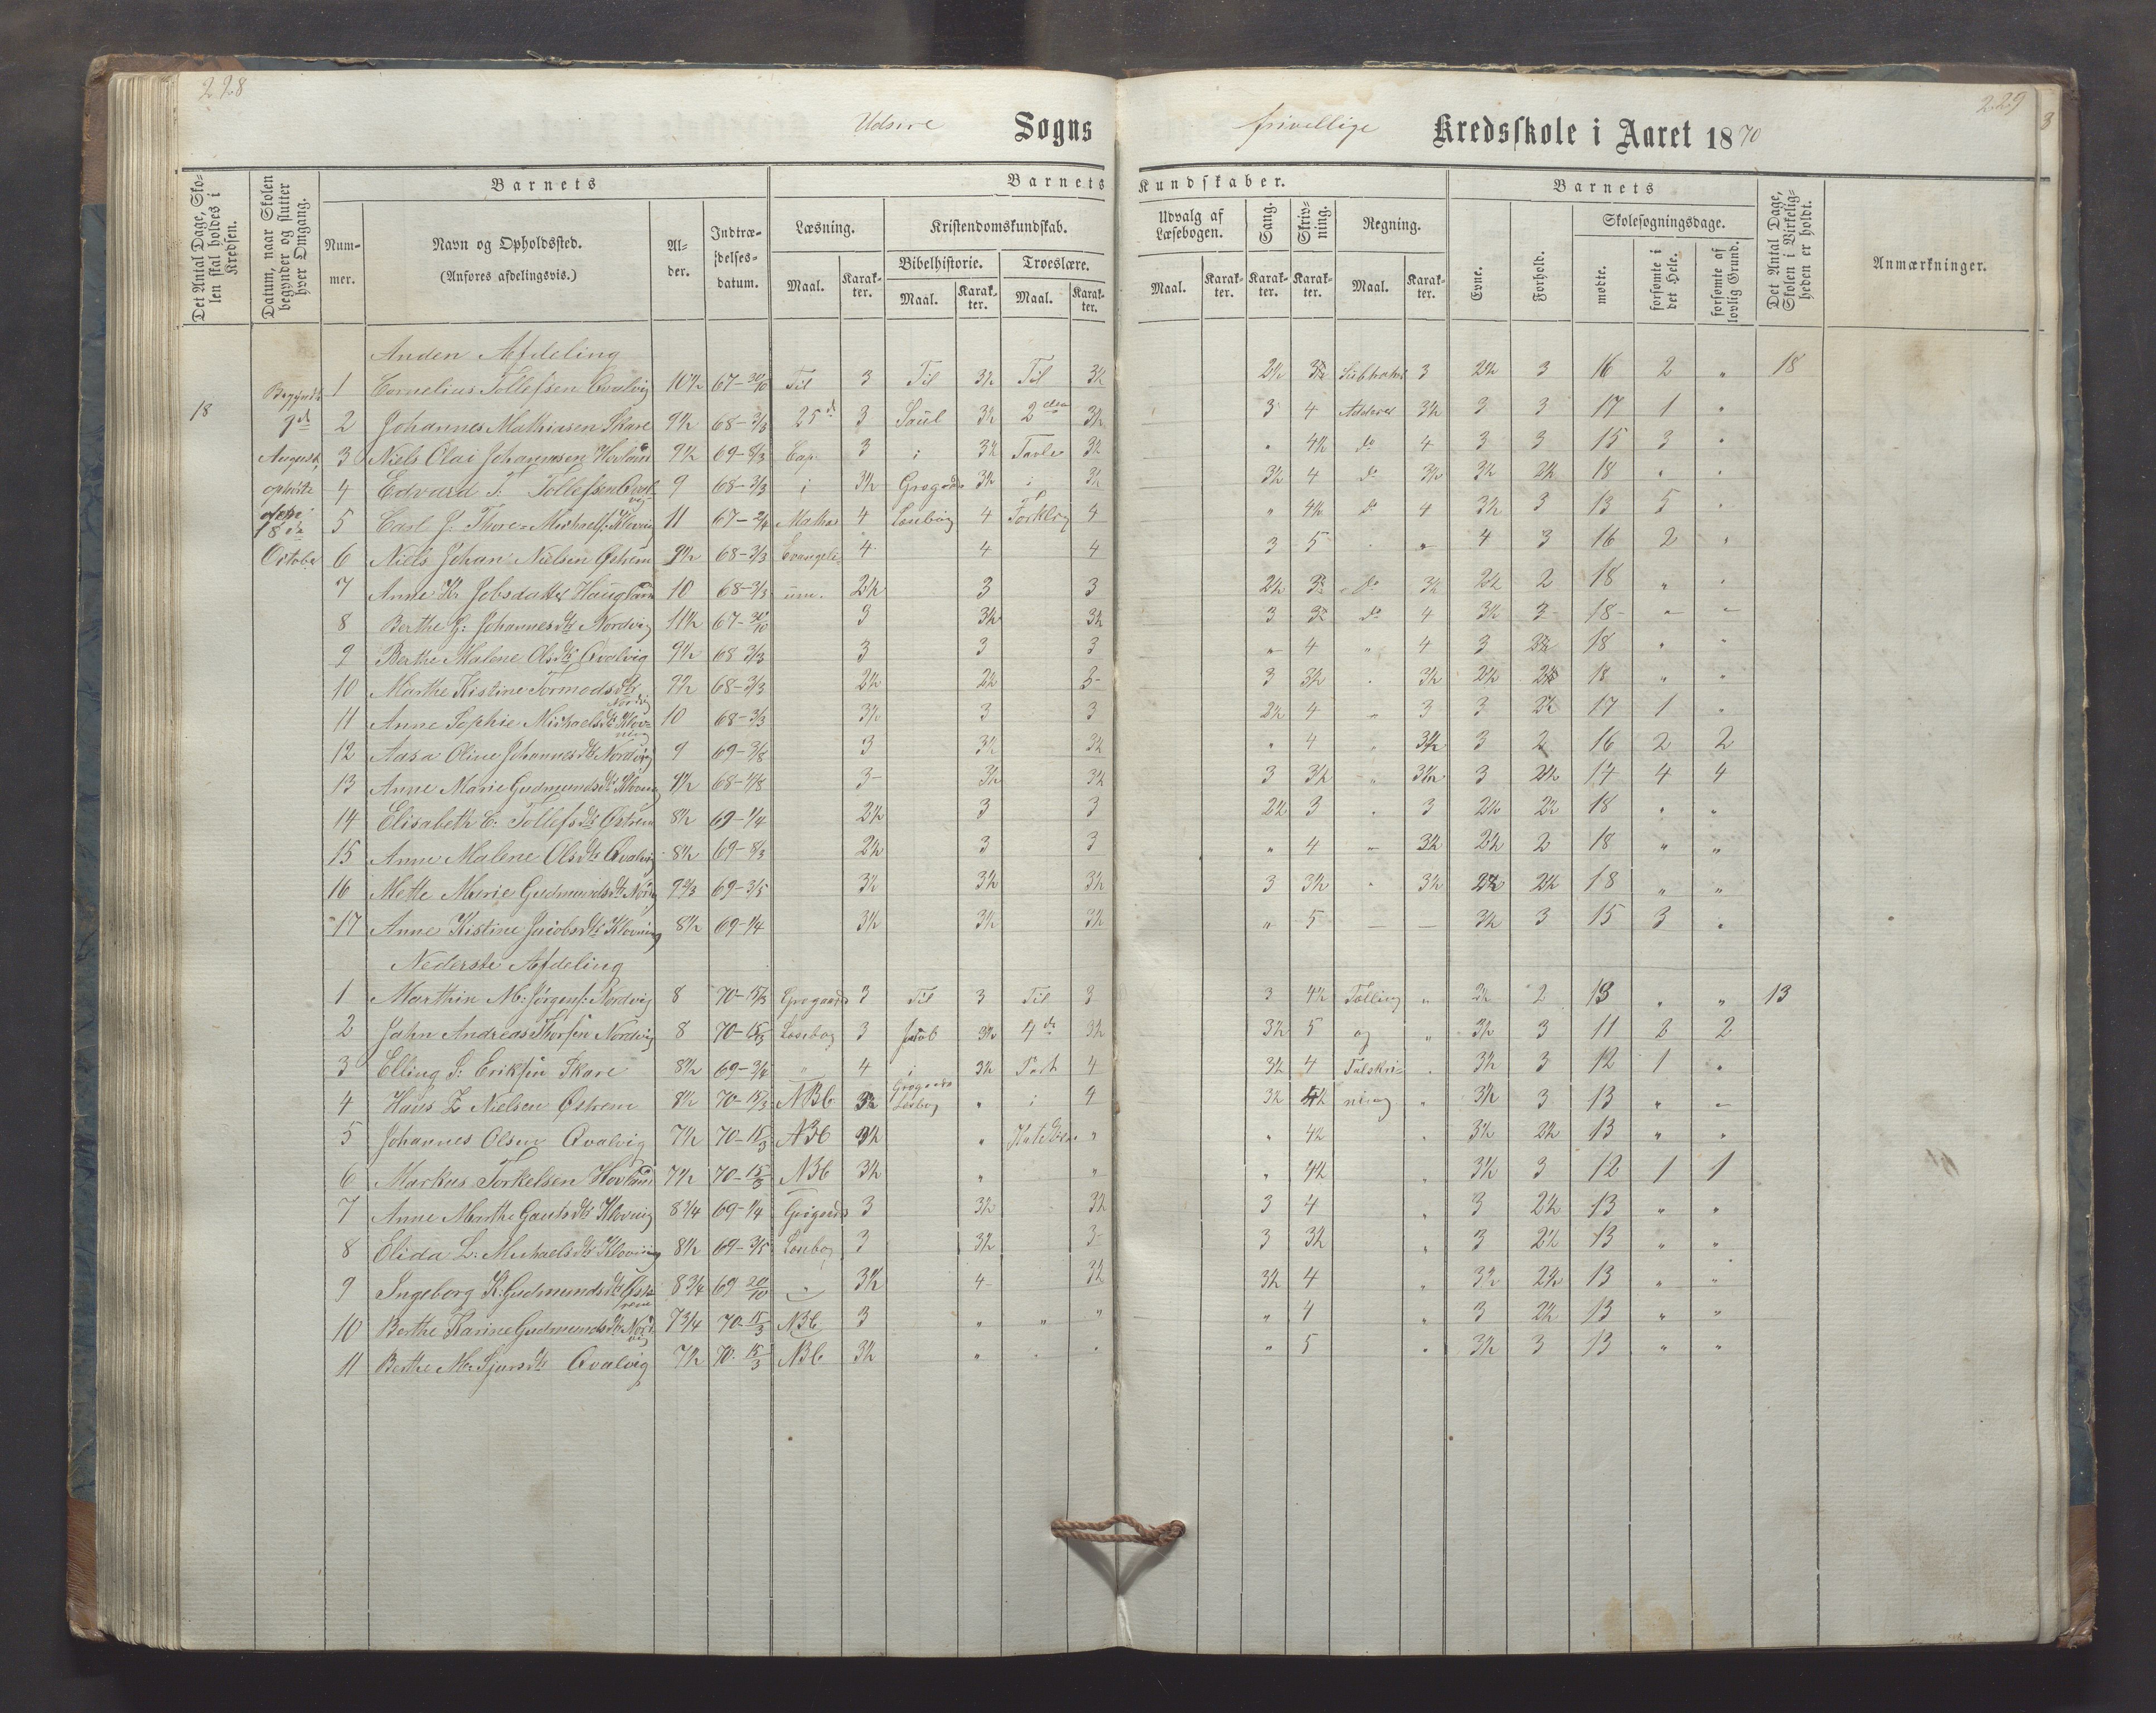 228
229
Udsire Sogns frivillige Kredsskole i Aaret 1870
Det Antal Dage, Skolen skal holdes i Kredsen.
Datum, naar Skolen begynder og slutter hver Omgang.
Barnets
Nummer.
Navn og Opholdssted.
(Anføres afdelingsvis.)
Alder.
Indtrædelsesdatum.
Barnets Kundskaber.
Læsning.
Maal.
Karakter.
Kristendomskundskab.
Bibelhistorie.
Maal.
Karakter.
Troeslære.
Maal.
Karakter.
Udvalg af Læsebogen.
Maal.
Karakter.
Sang.
Karakter.
Skrivning.
Karakter.
Regning.
Maal.
Karakter.
Barnets
Evne.
Forhold.
Skolesøgningsdage.
mødte.
forsømte i det Hele.
forsømte af lovlig Grund.
Det Antal Dage, Skolen i Virkeligheden er holdt.
Anmærkninger.
18
Begyndte
7de
August,
ophørte
18de
October
Anden Afdeling
1 Cornelius Tollefsen Qvalvig 10½ 67-30/10 Til 3 Til 3½ Til 3½ 2½ Subtraher 3 2½ 3 16 2 " 18
2 Johannes Mathiasen Skare 9½ 68-3/3 25de 3 Saul 3½ 2den 3½ 3 4 Addered 3½ 3 3 17 1 "
3 Niels Olai Johannesen Hovland 9½ 69-8/3 Cap. 3 i 3½ Tavle 3½ " 4½ do 4 3 3 15 3 "
4 Edvard T. Tollefsen Qvalvig 9 68-3/3 i 3½ Grøgaards 3½ i 3½ 3½ 4 do 3½ 3½ 2½ 18 " "
5 Carl J. Thore Michaels: Klovning 11 67-2/4 Mathæi 4 Læsebog 4 Forklrg 4 " 4½ do 4 3½ 3 13 5 "
6 Niels Johan Nielsen Østrem 9½ 68-3/3 Evangeli 4 4 4 3 5 " " 4 3 16 2 "
7 Anne Kr Jobsdatter Haugland 10 68-3/3 um. 2½ 3 3 2½ do 3½ 2½ 2 18 " "
8 Berthe G: Johannesdtr Nordvig 11½ 67-30/10 3 3½ 3½ 3 do 4 3½ 3 18 " "
9 Berthe Malene Olsdtr Qvalvig 9½ 68 3/3 3 3 3 " 4 " 4 3 2½ 18 " "
10 Marthe Kistine Tormodsdtr Nordvig 9½ 68-3/3 2½ 2½ 3 3 3½ " 3½ 2½ 2½ 18 " "
11 Anne Sophie Michaelsdtr Klovning 10 68-3/3 3½ 3 3 2½ 4 " 3 3 2½ 17 1 "
12 Aasa Oline Johannesdtr Nordvig 9 69-3/8 3 3½ 3½ " 4 " 3½ 3 2 16 2 2
13 Anne Marie Gudmundsdtr Klovning 9½ 3 3½ 3½ 3 3½ " 3½ 3 2½ 14 4 4
14 Elisabeth C: Tollefsdtr Østrem 8½ 69-1/4 2½ 3 3 2½ 3 " 3 2½ 2½ 18 " "
15 Anne Malene Olsdtr Qvalvig 8½ 69-8/3 2½ 3 3 " 4 " 3½ 2½ 2 18 " "
16 Mette Marie Gudmundsdtr Nordvig 9⅔ 69-3/5 3½ 3½ 3½ 3 3½ " 3½ 2½ 2½ 18 " "
17 Anne Kistine Jacobsdtr Klovning 8½ 69-1/4 3½ 3½ 3½ " 5 – – 3½ 3 15 3 "
Nederste Afdeling
1 Marthin M: Jørgens: Nordvig 8 70-15/3 Grøgaards 3 Til 3 Til 3 3 4½ Tælling " 2½ 2 13 " " 13
2 Jahn Andreas Thorsen Nordvig 8 70-15/3 Læsebog 3 Jacob 3½ 4de 3½ 3½ 5 og " 3½ 3 11 2 2
3 Elling S: Eriksen Skare 8½ 69-3/4 " 4 i 3½ Part 4 3½ 4 Talskri- " 3½ 3 12 1 "
4 Hans Z Nielsen Østrem 8½ 70-15/3 ABC 3½ Grøgaards Lesbog " i 4 3½ 4½ vning " 3½ 3 13 " "
5 Johannes Olsen Qvalvig 7½ 70-15/3 ABC 3½ " " " 4½ " 3½ 2½ 13 " "
6 Markus Torkelsen Hovland 7½ 70-15/3 ABC 3½ " " " 4½ " 3½ 3 12 1 1
7 Anne Marthe Gautsdtr Klovning 8¾ 69-1/4 Grøgaards 3 3½ 3½ 3 4 " 3 2½ 13 " "
8 Elida L: Michaelsdtr Klovning 8½ 69-3/5 Læsebog 3 3½ 3 3 3½ " 3 2½ 13 " "
9 Ingeborg K: Gudmundsdtr Østrem 8¾ 69 20/10 " 3½ 4 3½ 3½ 4 " 3½ 2½ 13 " "
10 Berthe Karine Gudmundsdtr Nordvig 7¾ 70-15/3 ABC 3 " " " " 4 " 3 2½ 13 " "
11 Berthe M: Sjursdtr Qvalvig 7½ 70-15/3 ABC 3½ " " " " 5 " 3½ 3 13 " "